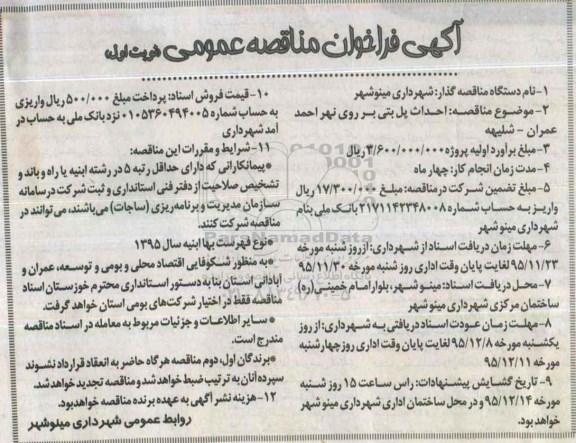 آگهی فراخوان مناقصه عمومی (نوبت اول)
۱-نام دستگاه مناقصه گذار: شهرداری مینوشهر
۲-موضوع مناقصه: احداث پل بتنی بر روی نهر احمد
عمران - شلیهه
۳-مبلغ برآورد اولیه پروژه ۳/۶۰۰/۰۰۰/۰۰۰ ریال
۴-مدت زمان انجام کار: چهار ماه
۵-مبلغ تضمین شرکت در مناقصه: مبلغ ۱۷/۳۰۰/۰۰۰ ریال
واریز به حساب شماره ۲۱۷۱۱۴۲۳۴۸۰۰۸ بانک ملی بنام
شهرداری مینو شهر
۶-مهلت زمان دریافت اسناد از شهرداری: از روز شنبه مورخه
۹۵/۱۱/۲۳ لغایت پایان وقت اداری روز شنبه مورخه ۹۵/۱۱/۳۰
۷-محل دریافت اسناد: مینو شهر، بلوار امام خمینی(ره)
ساختمان مرکزی شهرداری مینو شهر
۸-مهلت زمان عودت اسناد دریافتی به شهرداری: از روز
یکشنبه مورخه ۹۵/۱۲/۸ لغایت پایان وقت اداری روز چهارشنبه
مورخه ۹۵/۱۲/۱۱
۹- تاریخ گشایش پیشنهادات: راس ساعت ۱۵ روز شنبه
مورخه ۹۵/۱۲/۱۴ و در محل ساختمان اداری شهرداری مینو شهر
خواهد بود.
۱۰-قیمت فروش اسناد: پرداخت مبلغ ۵۰۰/۰۰۰ ریال واریزی
به حساب شماره ۰۱۰۵۳۶۰۴۹۴۰۰۵ نزد بانک ملی به حساب در
آمد شهرداری
۱۱-شرایط و مقررات این مناقصه:
●پیمانکارانی که دارای حداقل رتبه ۵ در رشته ابنیه یا راه و باند و
تشخیص صلاحیت از دفتر فنی استانداری و ثبت شرکت در سامانه
سازمان مدیریت و برنامه ریزی (ساجات) می‌باشند، می‌توانند در
مناقصه شرکت کنند.
●نوع فهرست بها ابنیه سال ۱۳۹۵
●به منظور شکوفایی اقتصاد محلی و بومی و توسعه، عمران و
آبادانی استان بنا به دستور استانداری محترم خوزستان اسناد
مناقصه فقط در اختیار شرکت‌های بومی استان خواهد گرفت.
●سایر اطلاعات و جزئیات مربوط به معامله در اسناد مناقصه
مندرج است.
●برندگان اول، دوم مناقصه هرگاه حاضر به انعقاد قرارداد نشوند
سپرده آنان به ترتیب ضبط خواهد شد و مناقصه تجدید خواهد شد.
۱۲-هزینه نشر آگهی به عهده برنده مناقصه خواهد بود.
روابط عمومی شهرداری مینوشهر
ParsNamadData